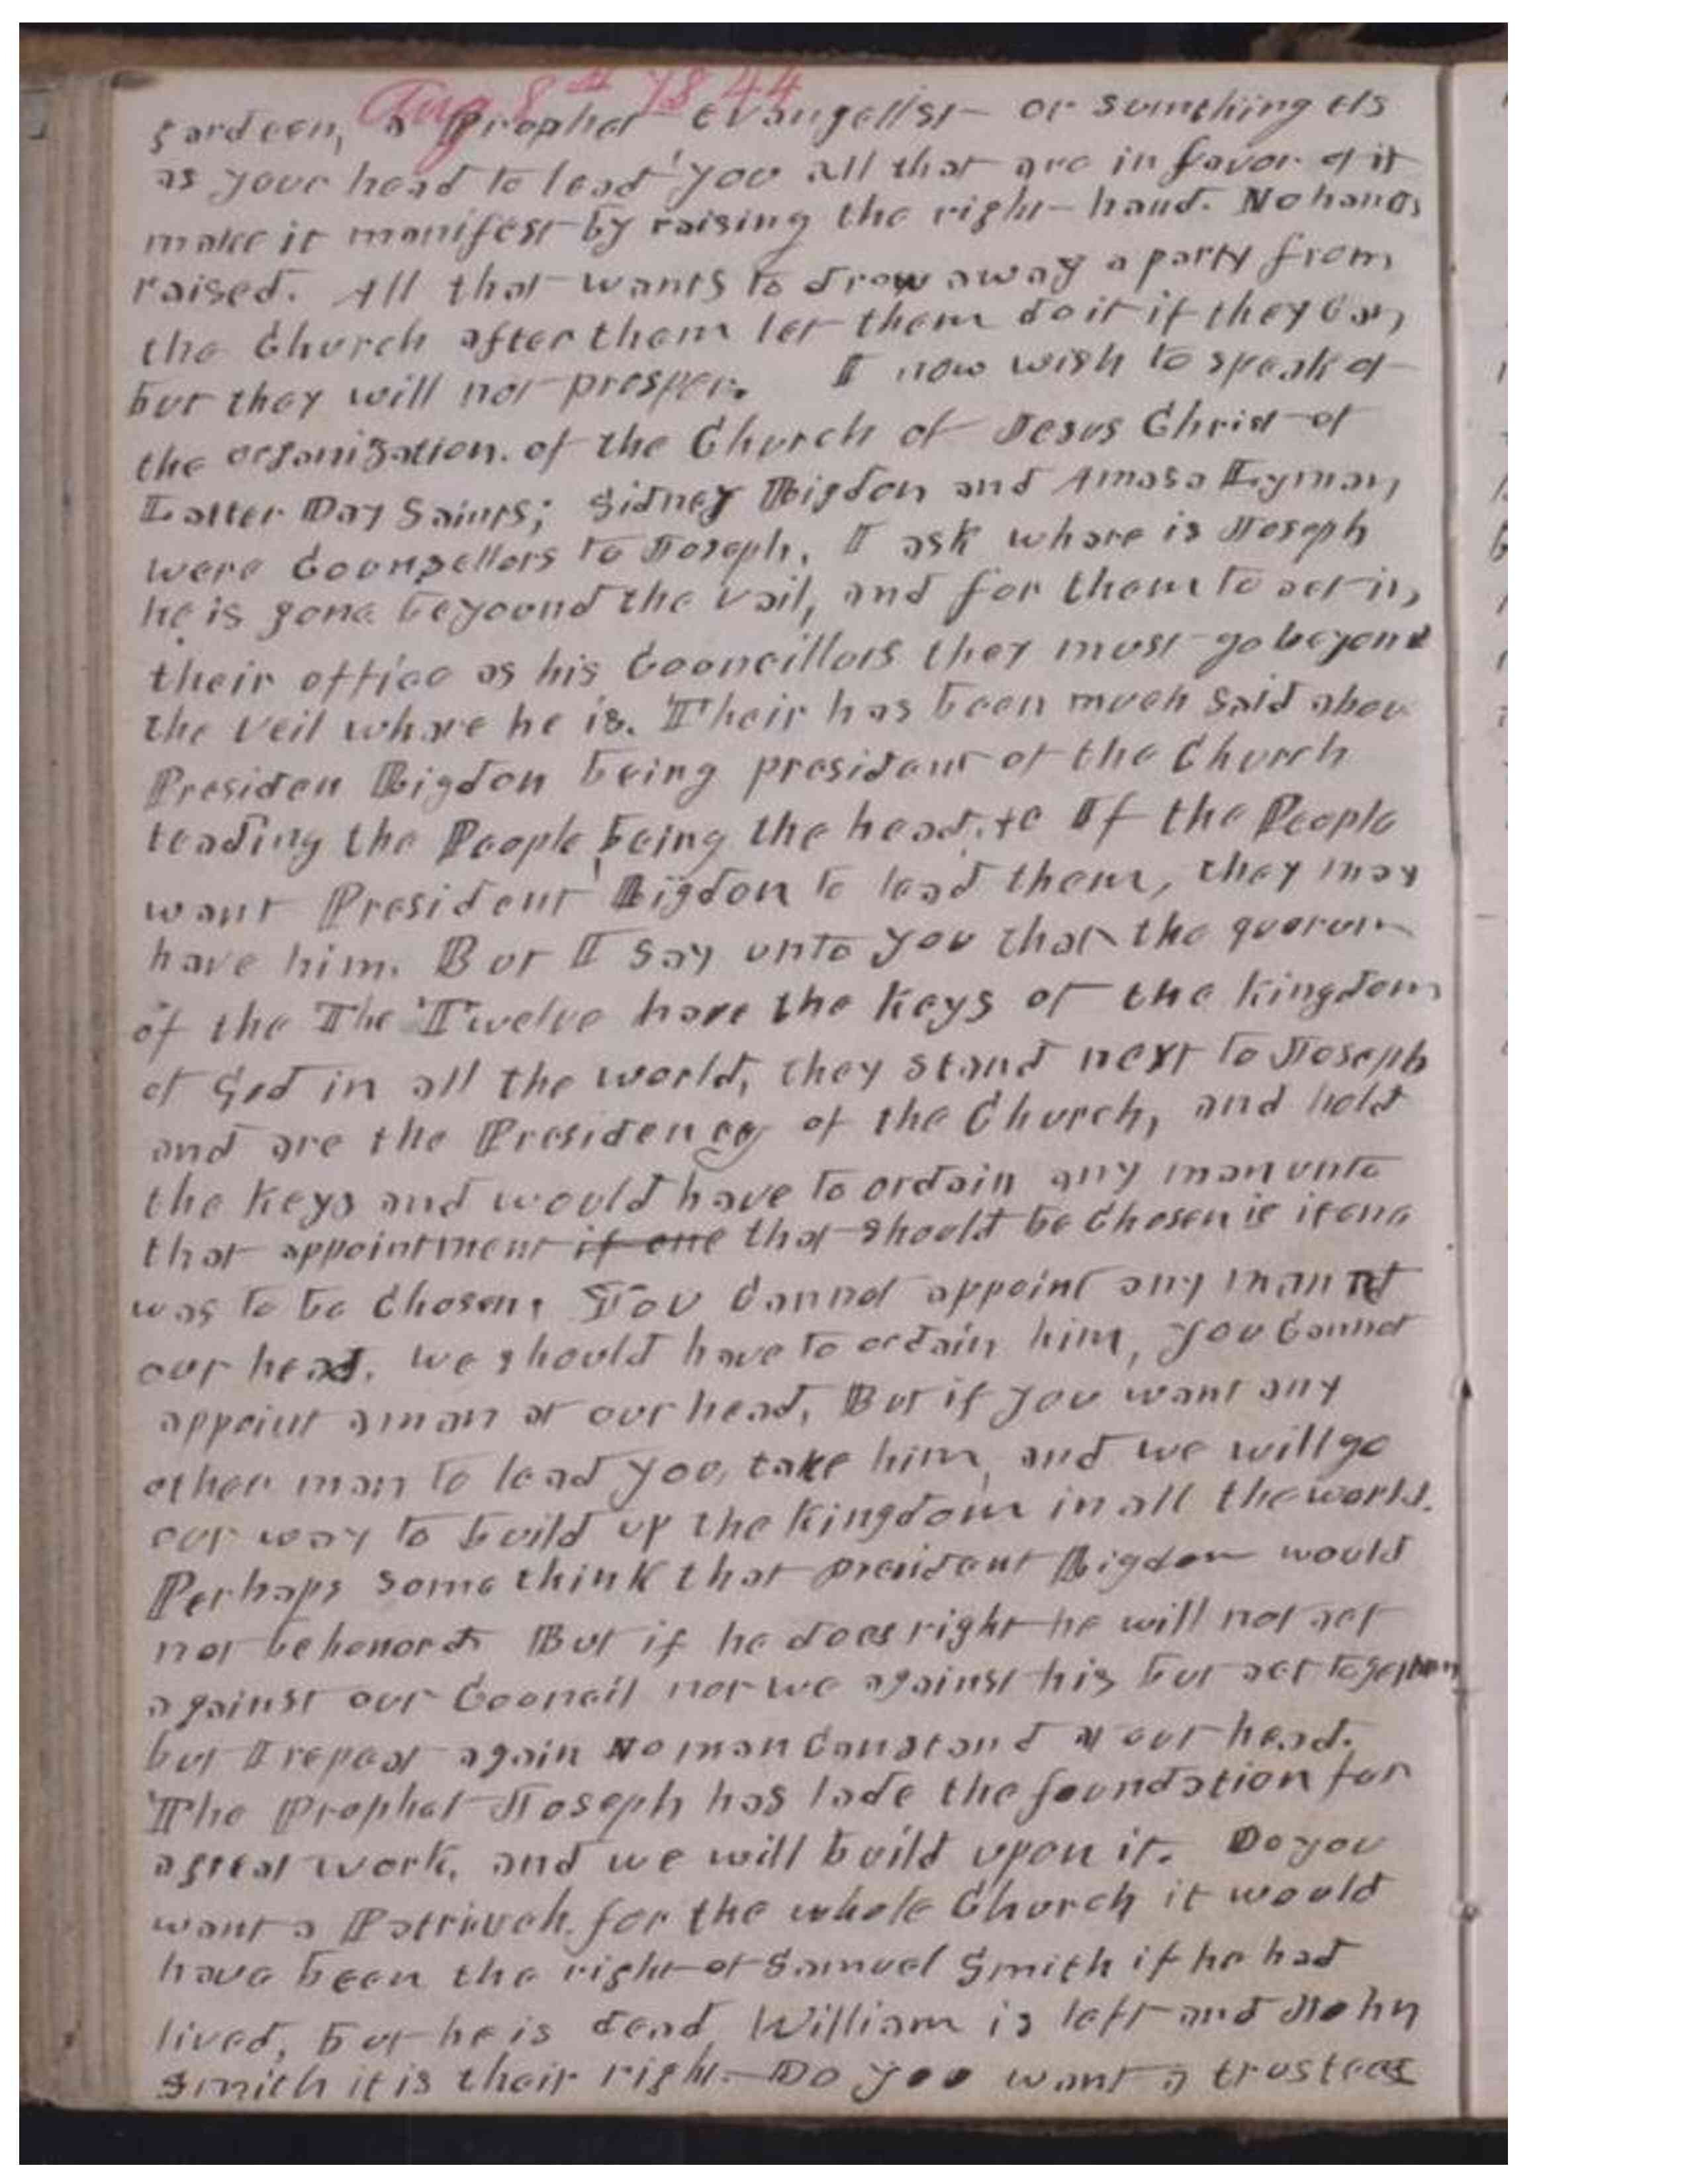 Aug 8th 1844
gardeen, a Prophet Evangelist or sumthing els
as your head to lead you all that are in favor of it
make it manifest by raising the right hand. No hands
raised. All that wants to draw away a party from
the Church after them let them do it if they Can
but they will not prosper. I now wish to speak of
the organization of the Church of Jesus Christ of
Latter Day Saints; Sidney Rigdon and Amasa Lyman
were Counsellors to Joseph, I ask whare is Joseph
he is gone beyound the vail, and for them to act in
their office as his Councillors they must go beyond
the Veil whare he is. Their has been much said abou
Presiden Rigdon being president of the Church
leading the People being the head, &c If the People
want President Rigdon to lead them, they may
have him. But I say unto you that the quorum
of the The Twelve have the Keys of the kingdom
of God in all the world, they stand next to Joseph
and are the Presidency of the Church, and hold
the Keys and would have to ordain any man unto
that appointment if one that should be Chosen if one
was to be Chosen, You Cannot appoint any man at
our head, we should have to ordain him, you Cannot
appoint a man at our head, But if you want any
other man to lead you, take him, and we will go
our way to build up the Kingdom in all the world.
Perhaps some think that president Rigdon would
not be honord But if he does right he will not act
against our Council nor we against his but act together
but I repeat again No man Can stand at our head.
The Prophet Joseph has lade the foundation for
a great work, and we will build upon it. Do you
want a Patriarch for the whole Church it would
have been the right of Samuel Smith if he had
lived, but he is dead William is left and John
Smith it is their right. Do you want a trustees